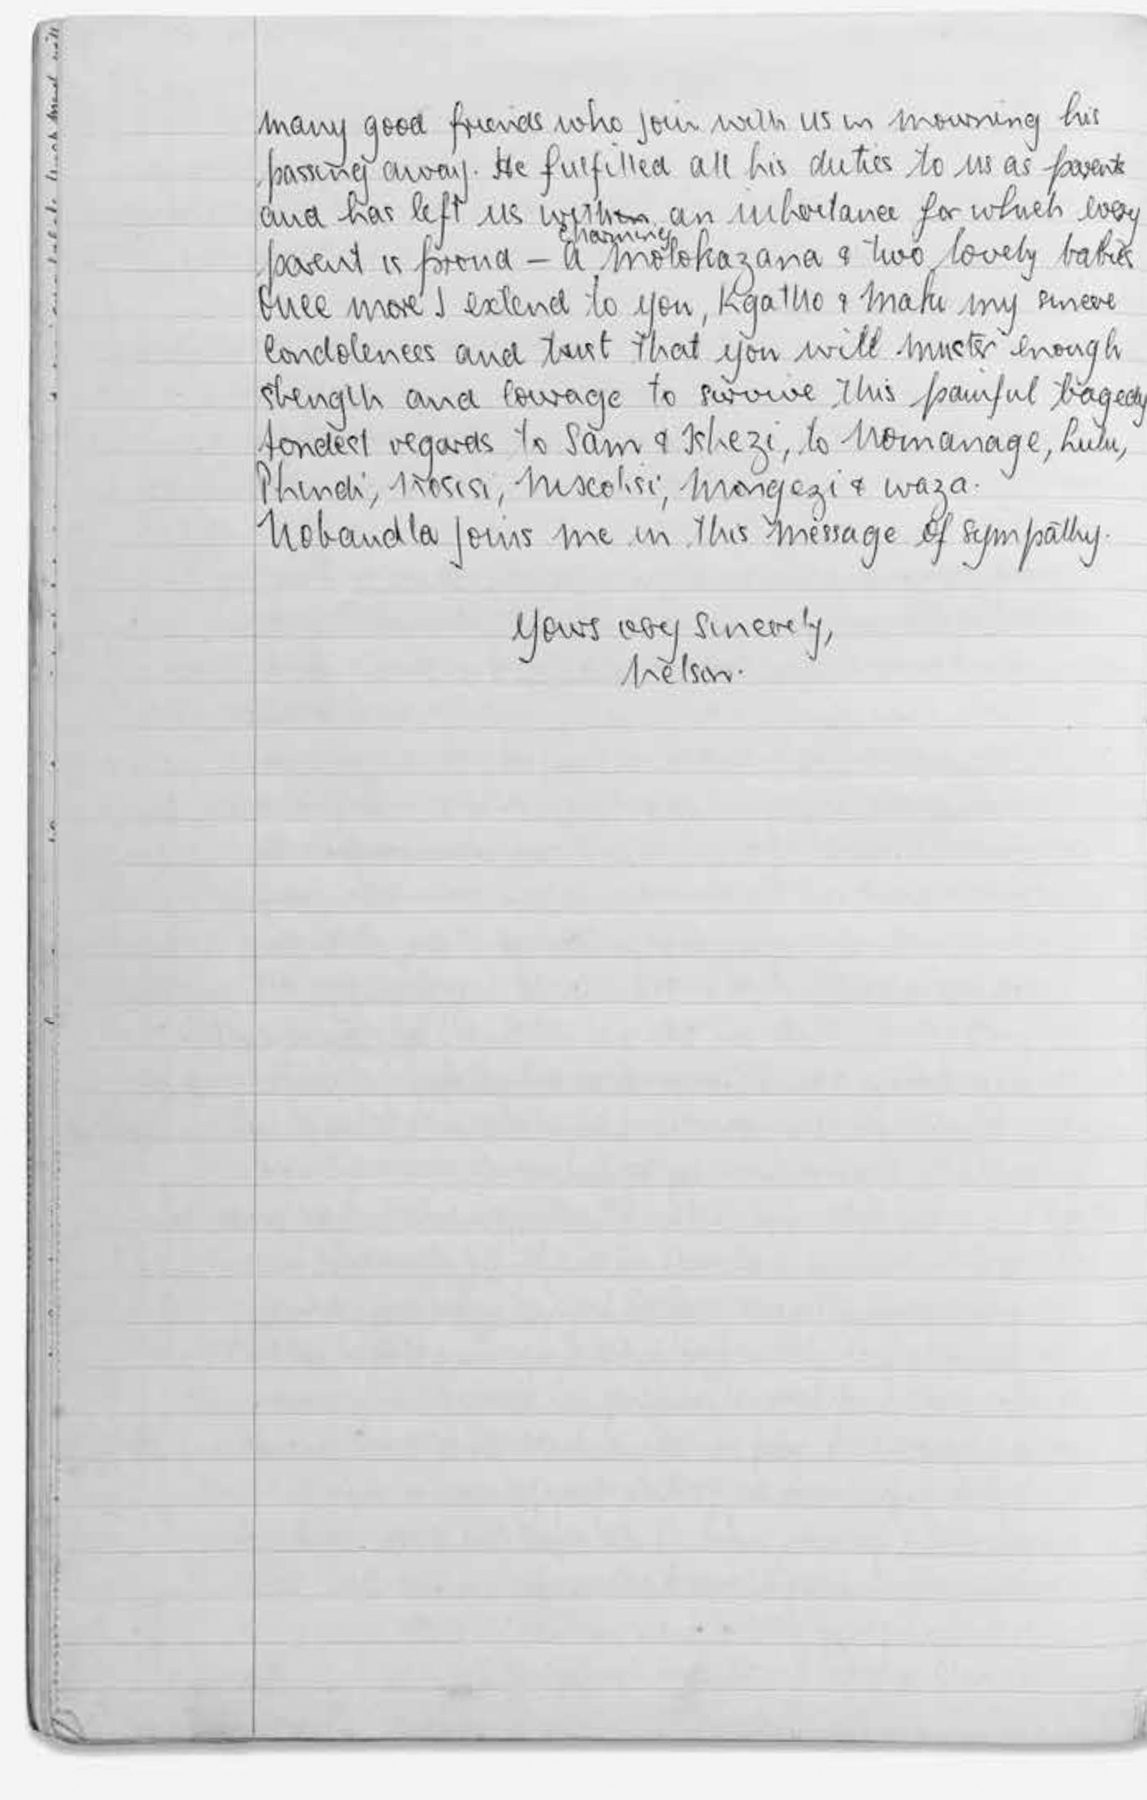 many good friends who join with us in mourning his
passing away. He fulfilled all his duties to us as parents
and has left us with an inheritance for which every
parent is proud – a charming molokazana & two lovely babies
Once more I extend to you, Kgatho & Maki my sincere
condolences and trust that you will muster enough
strength and courage to survive this painful tragedy
Fondest regards to Sam & Tshezi, to Nomanage, Lulu,
Phindi, Nosisi, Mxolisi, Mongezi & Waza.
Nobandla joins me in this message of sympathy.
Yours very sincerely,
Nelson.